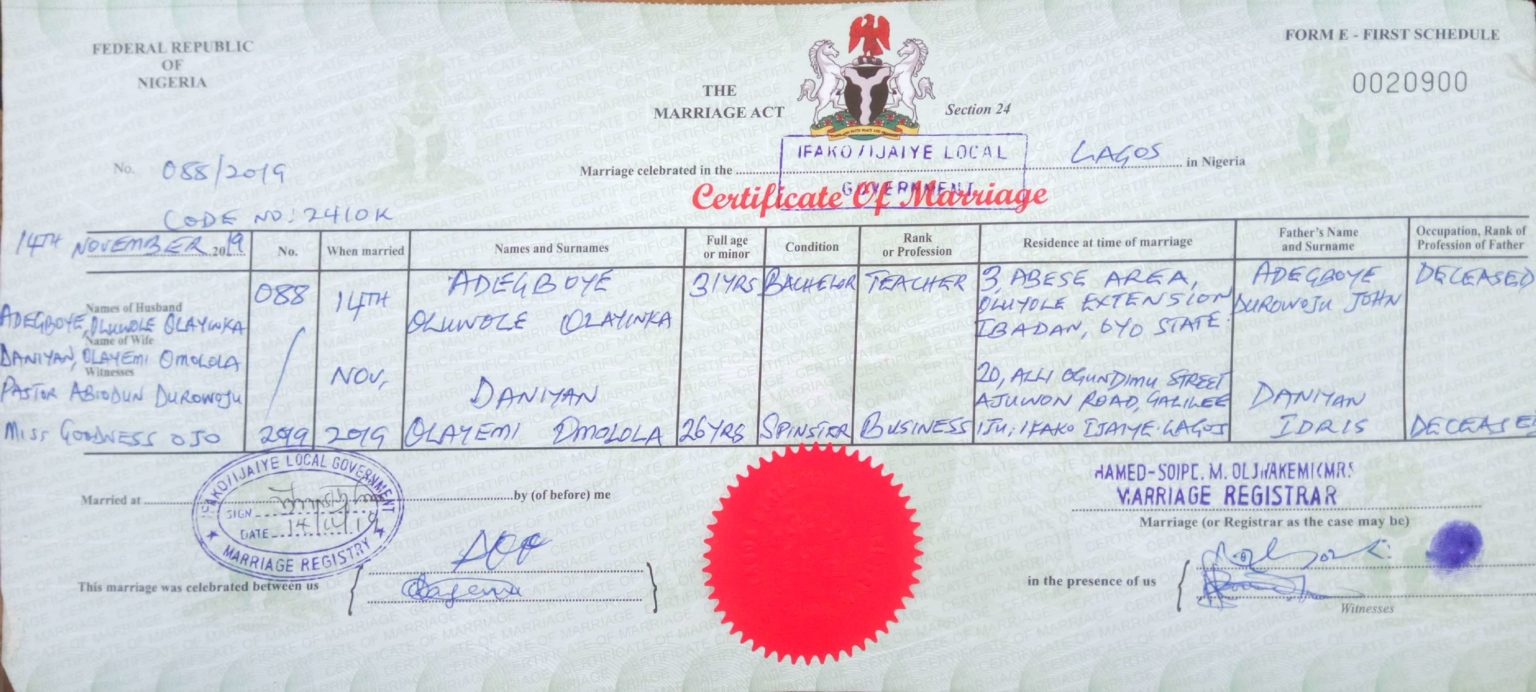 FEDERAL REPUBLIC
OF
NIGERIA
FORM E - FIRST SCHEDULE
0020900
THE
MARRIAGE ACT
Section 24
No. 088/2019
Marriage celebrated in the IFAKO/IJAIYE LOCAL GOVERNMENT LAGOS in Nigeria
Certificate Of Marriage
CODE NO: 2410K
14TH NOVEMBER 2019
No.
When married
Names and Surnames
Full age or minor
Condition
Rank or Profession
Residence at time of marriage
Father's Name and Surname
Occupation, Rank of Profession of Father
Names of Husband
ADEGBOYE, OLUWOLE OLAYINKA
Name of Wife
DANIYAN, OLAYEMI OMOLOLA
Witnesses
PASTOR ABIODUN DUROWOJU
MISS GOODNESS OJO
088 / 2019
14TH NOV, 2019
ADEGBOYE
OLUWOLE OLAYINKA
31YRS
BACHELOR
TEACHER
3, ABESE AREA,
OLUYOLE EXTENSION
IBADAN, OYO STATE.
ADEGBOYE
DUROWOJU JOHN
DECEASED
DANIYAN
OLAYEMI OMOLOLA
26YRS
SPINSTER
BUSINESS
20, ALLI OGUNDIMU STREET
AJUWON ROAD, GALILEE
IJU, IFAKO IJAIYE. LAGOS
DANIYAN
IDRIS
DECEASED
Married at
IFAKO/IJAIYE LOCAL GOVERNMENT
SIGN
DATE 14/11/19
MARRIAGE REGISTRY
by (of before) me
MARRIAGE REGISTRAR
Marriage (or Registrar as the case may be)
This marriage was celebrated between us
in the presence of us
Witnesses